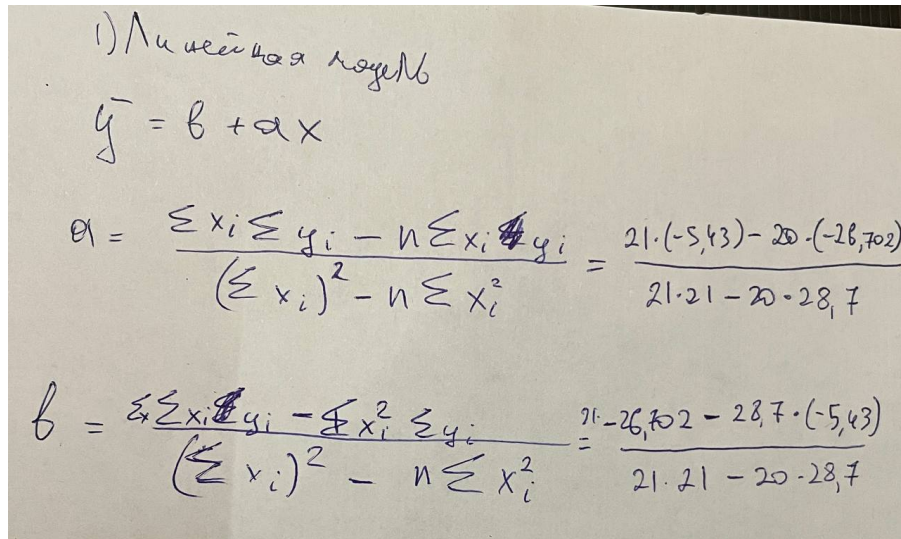 1) Линейная модель
ȳ = b + ax
a = (Σxi Σyi − nΣxi yi) / ((Σxi)² − nΣxi²) = (21·(-5,43) − 20·(-26,702)) / (21·21 − 20·28,7)
b = (Σxi Σxi yi − Σxi² Σyi) / ((Σxi)² − nΣxi²) = (21·-26,702 − 28,7·(-5,43)) / (21·21 − 20·28,7)